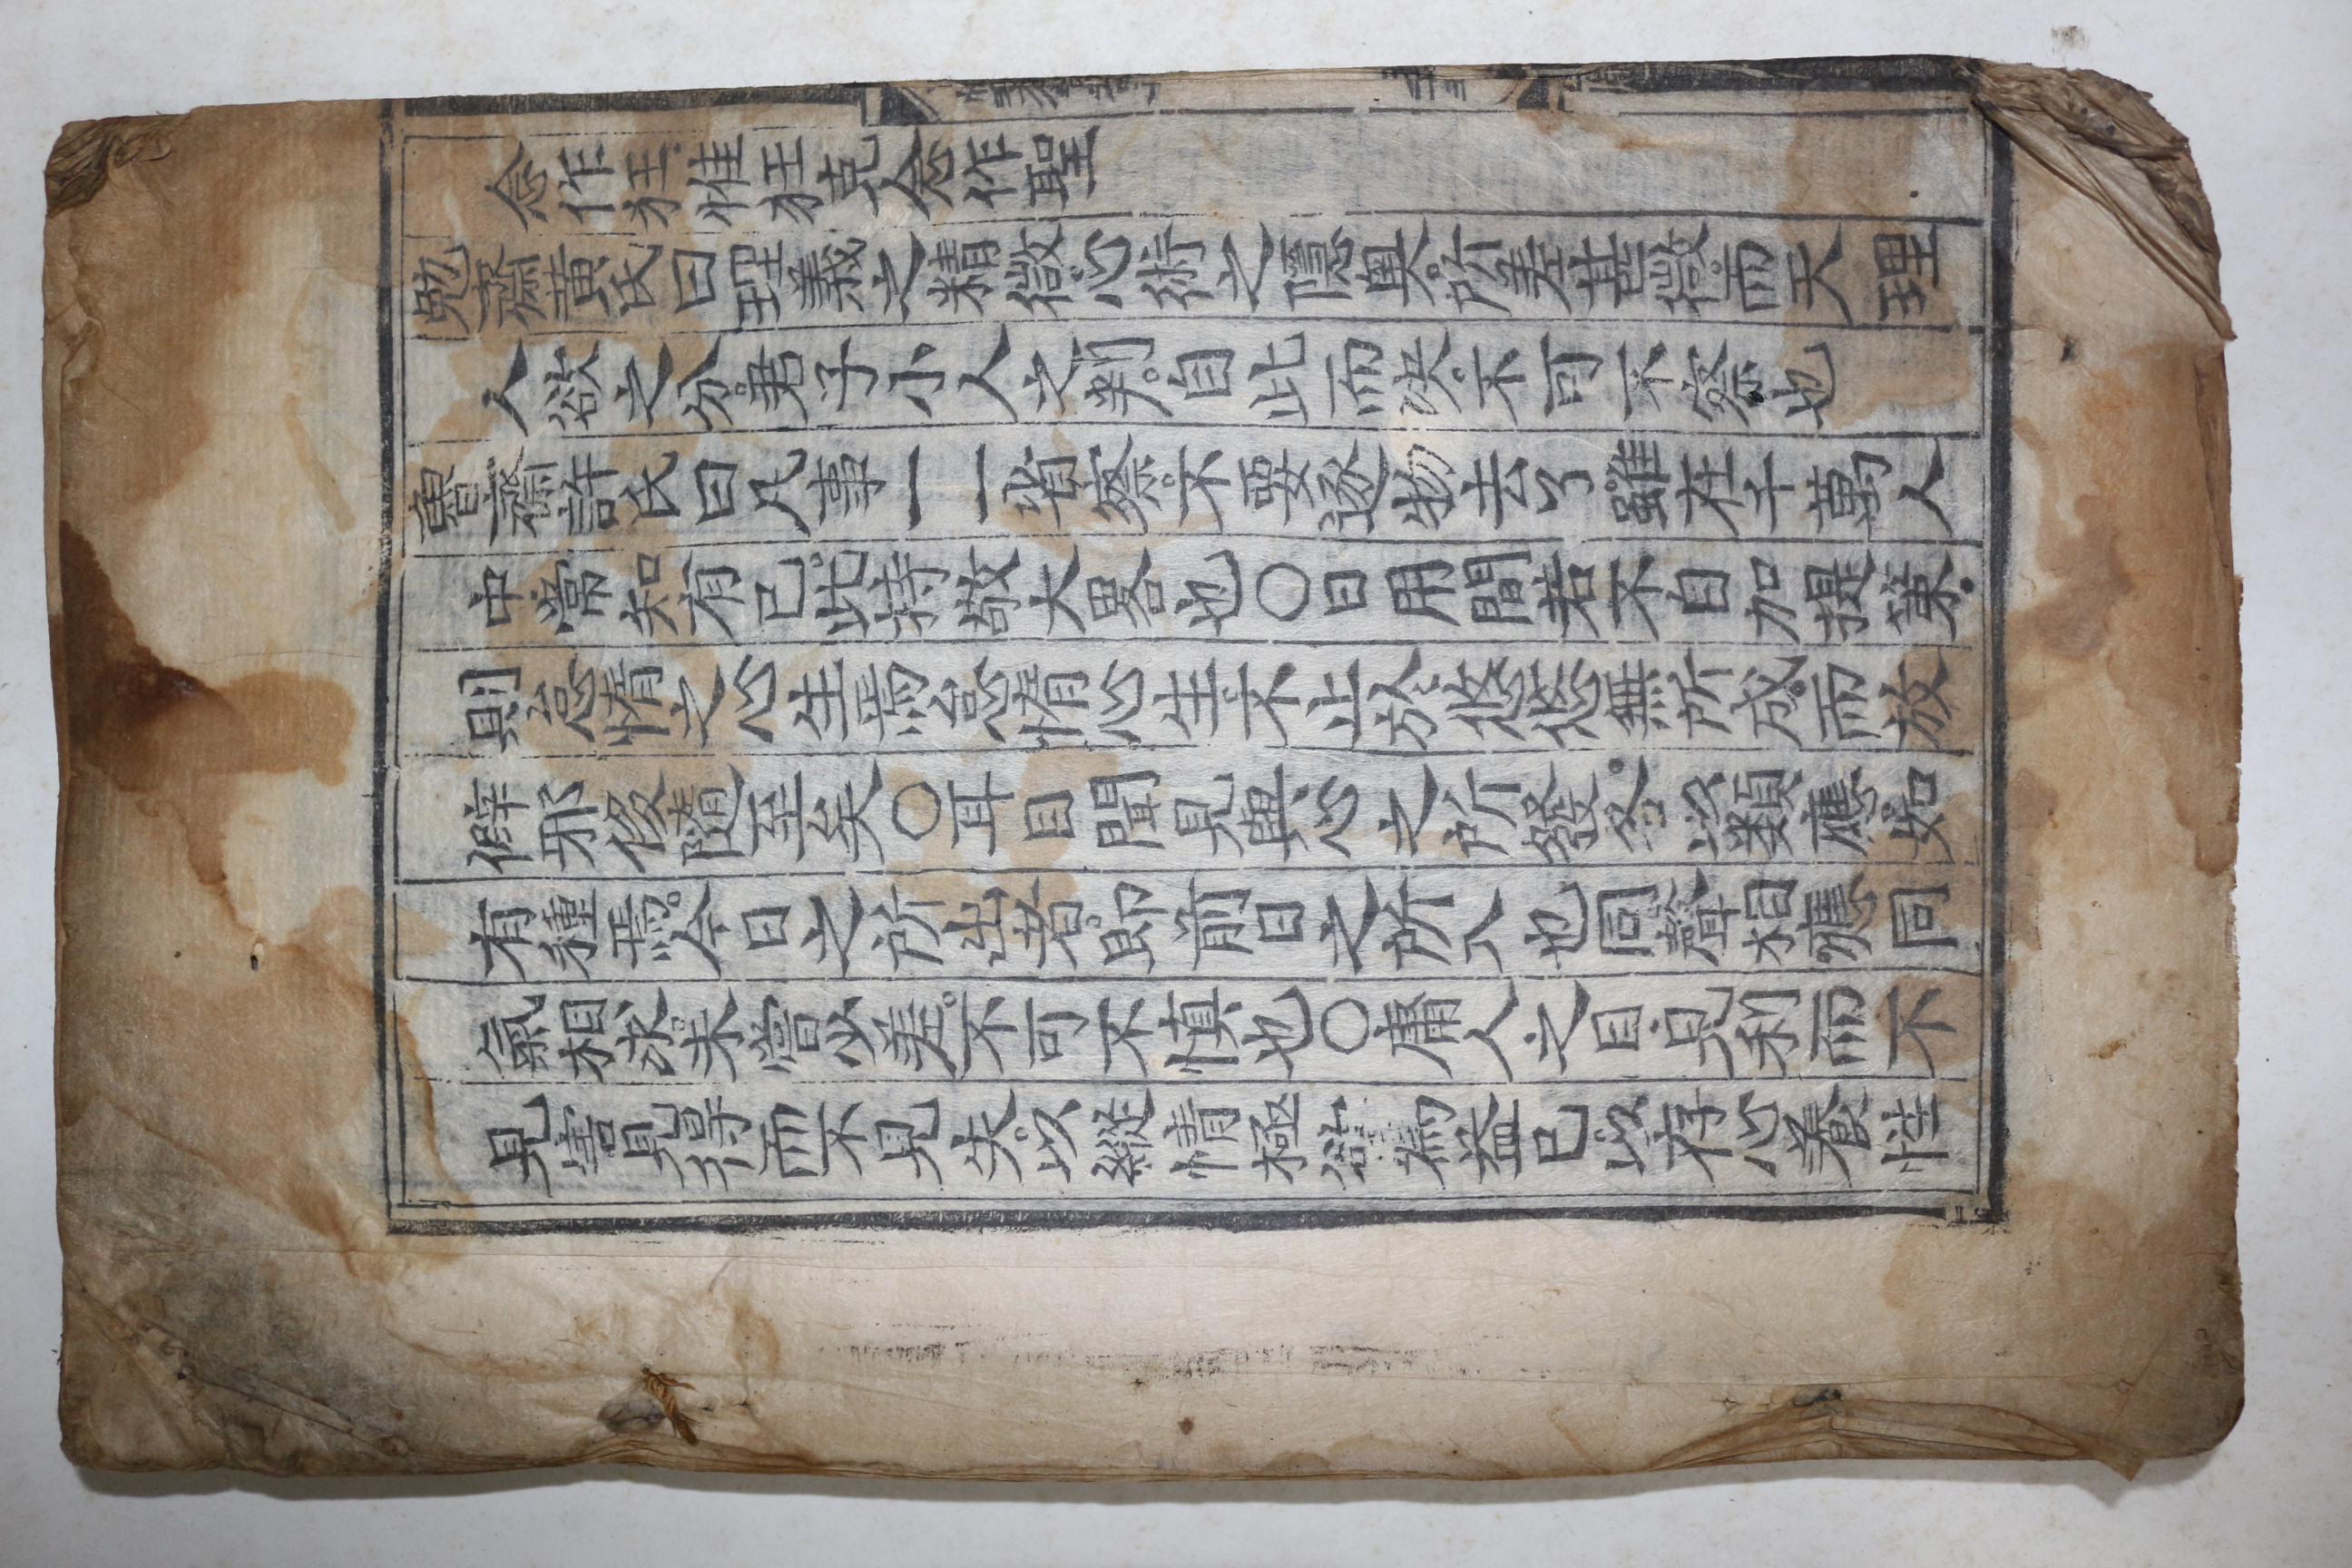 念作狂惟狂克念作聖
勉齋黃氏曰理義之精微心術之隱奧所差甚微而天理
人欲之分君子小人之判自此而決不可不察也
魯齋許氏曰凡事一一省察不要逐物去了雖在千萬人
中常知有己此持敬大畧也○日用間若不自加提策
則怠惰之心生焉怠惰心生不止於悠悠無所成而放
僻邪侈隨至矣○耳目聞見與心之所發各以類應如
有種焉今日之所出者即前日之所入也同聲相應同
氣相求未嘗少差不可不愼也○庸人之目見利而不
見害見得而不見失以縱情極欲爲益己以存心養性